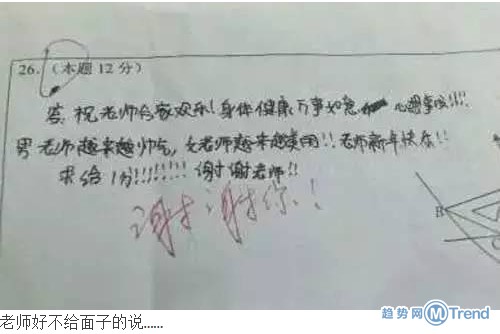 26.(本题12分)
答:祝老师合家欢乐!身体健康万事如意 心想事成!!!!
男老师越来越帅气,女老师越来越美丽!!老师新年快乐!!
求给1分!!!!!!!!谢谢老师!!
谢谢你!
B
C
趋势网 M Trend
老师好不给面子的说......